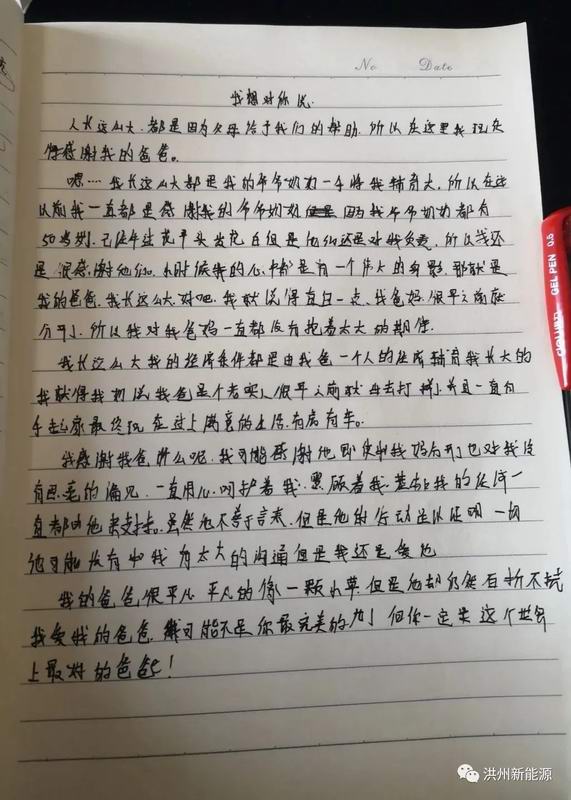 No    Date
我想对你说
人长这么大,都是因为父母给于我们的帮助,所以在这里我现在
得感谢我的爸爸。
嗯…… 我长这么大都是我的爷爷奶奶一手将我辅育大,所以在这
以前我一直都是感谢我的爷爷奶奶 因为我爷爷奶奶都有
50岁,已经年过花甲头发花白但是他们还是对我负责,所以我还
是很感谢他们。小时候我的心中都是有一个伟大的身影,那就是
我的爸爸,我长这么大,对吧,我就说得直白一点,我爸妈很早之前就
分开了,所以我对我爸妈一直都没有抱着太大的期望。
我长这么大我的经济条件都是由我爸一个人的经济辅育我长大的
我就得我初说我爸是个老实人很早之前就出去打拼,并且一直白
手起家最终现在过上满意的生活,有房有车。
我感谢我爸什么呢,我可能感谢他即使和我妈分开了也对我没
有思毫的偏见,一直用心呵护着我,照顾着我,甚至我的经济一
直都由他来支持。虽然他不善于言表,但是他的行动足以证明一切
他可能没有和我有太大的沟通但是我还是爱他
我的爸爸很平凡 平凡的像一颗小草,但是他却仍然百折不挠
我爱我的爸爸,我可能不是你最完美的儿子 但你一定是这个世界
上最好的爸爸!
deli得力 GEL PEN 0.5
洪州新能源